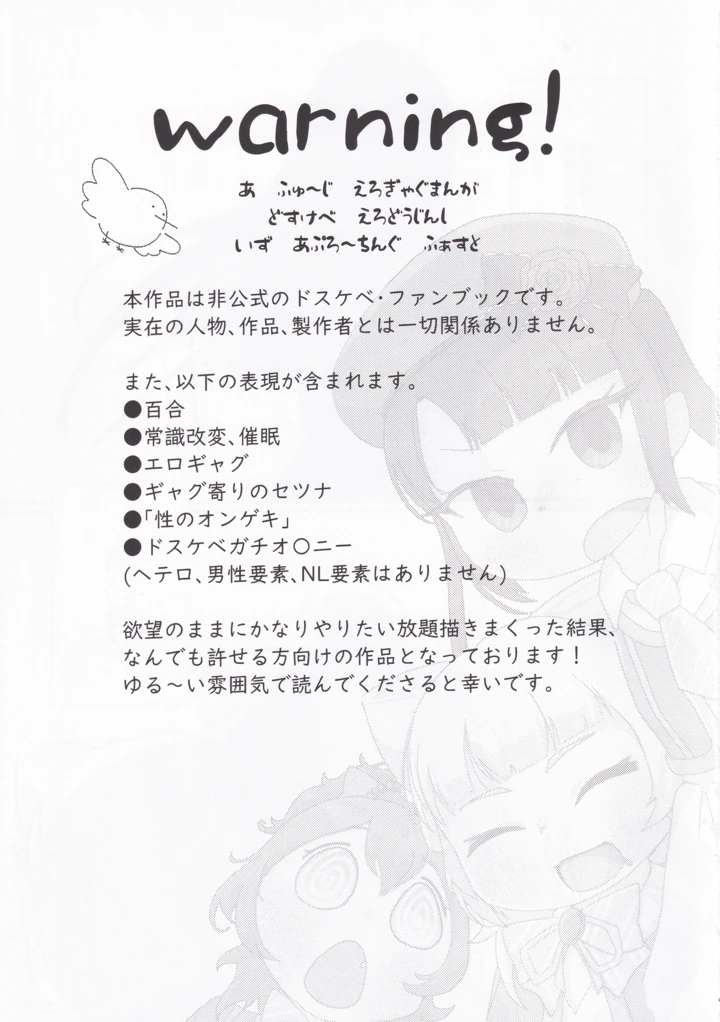 warning!
あ ふゅ〜じ えろぎゃぐまんが
どすけべ えろどうじんし
いず あぷろ〜ちんぐ ふぁすと
本作品は非公式のドスケベ・ファンブックです。
実在の人物、作品、製作者とは一切関係ありません。
また、以下の表現が含まれます。
●百合
●常識改変、催眠
●エロギャグ
●ギャグ寄りのセツナ
●「性のオンゲキ」
●ドスケベガチオ〇ニー
(ヘテロ、男性要素、NL要素はありません)
欲望のままにかなりやりたい放題描きまくった結果、
なんでも許せる方向けの作品となっております！
ゆる〜い雰囲気で読んでくださると幸いです。